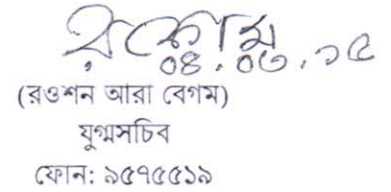 ০৪.০৩.১৫
(রওশন আরা বেগম)
যুগ্মসচিব
ফোন: ৯৫৭৫৫১৯